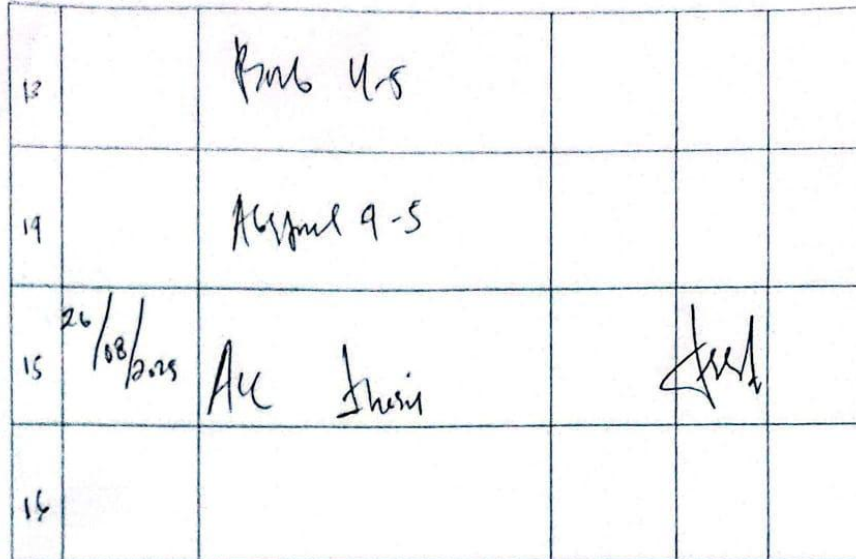 13 Bab 4-5
14 4-5
15 26/08/2025 Acc Thesis
16